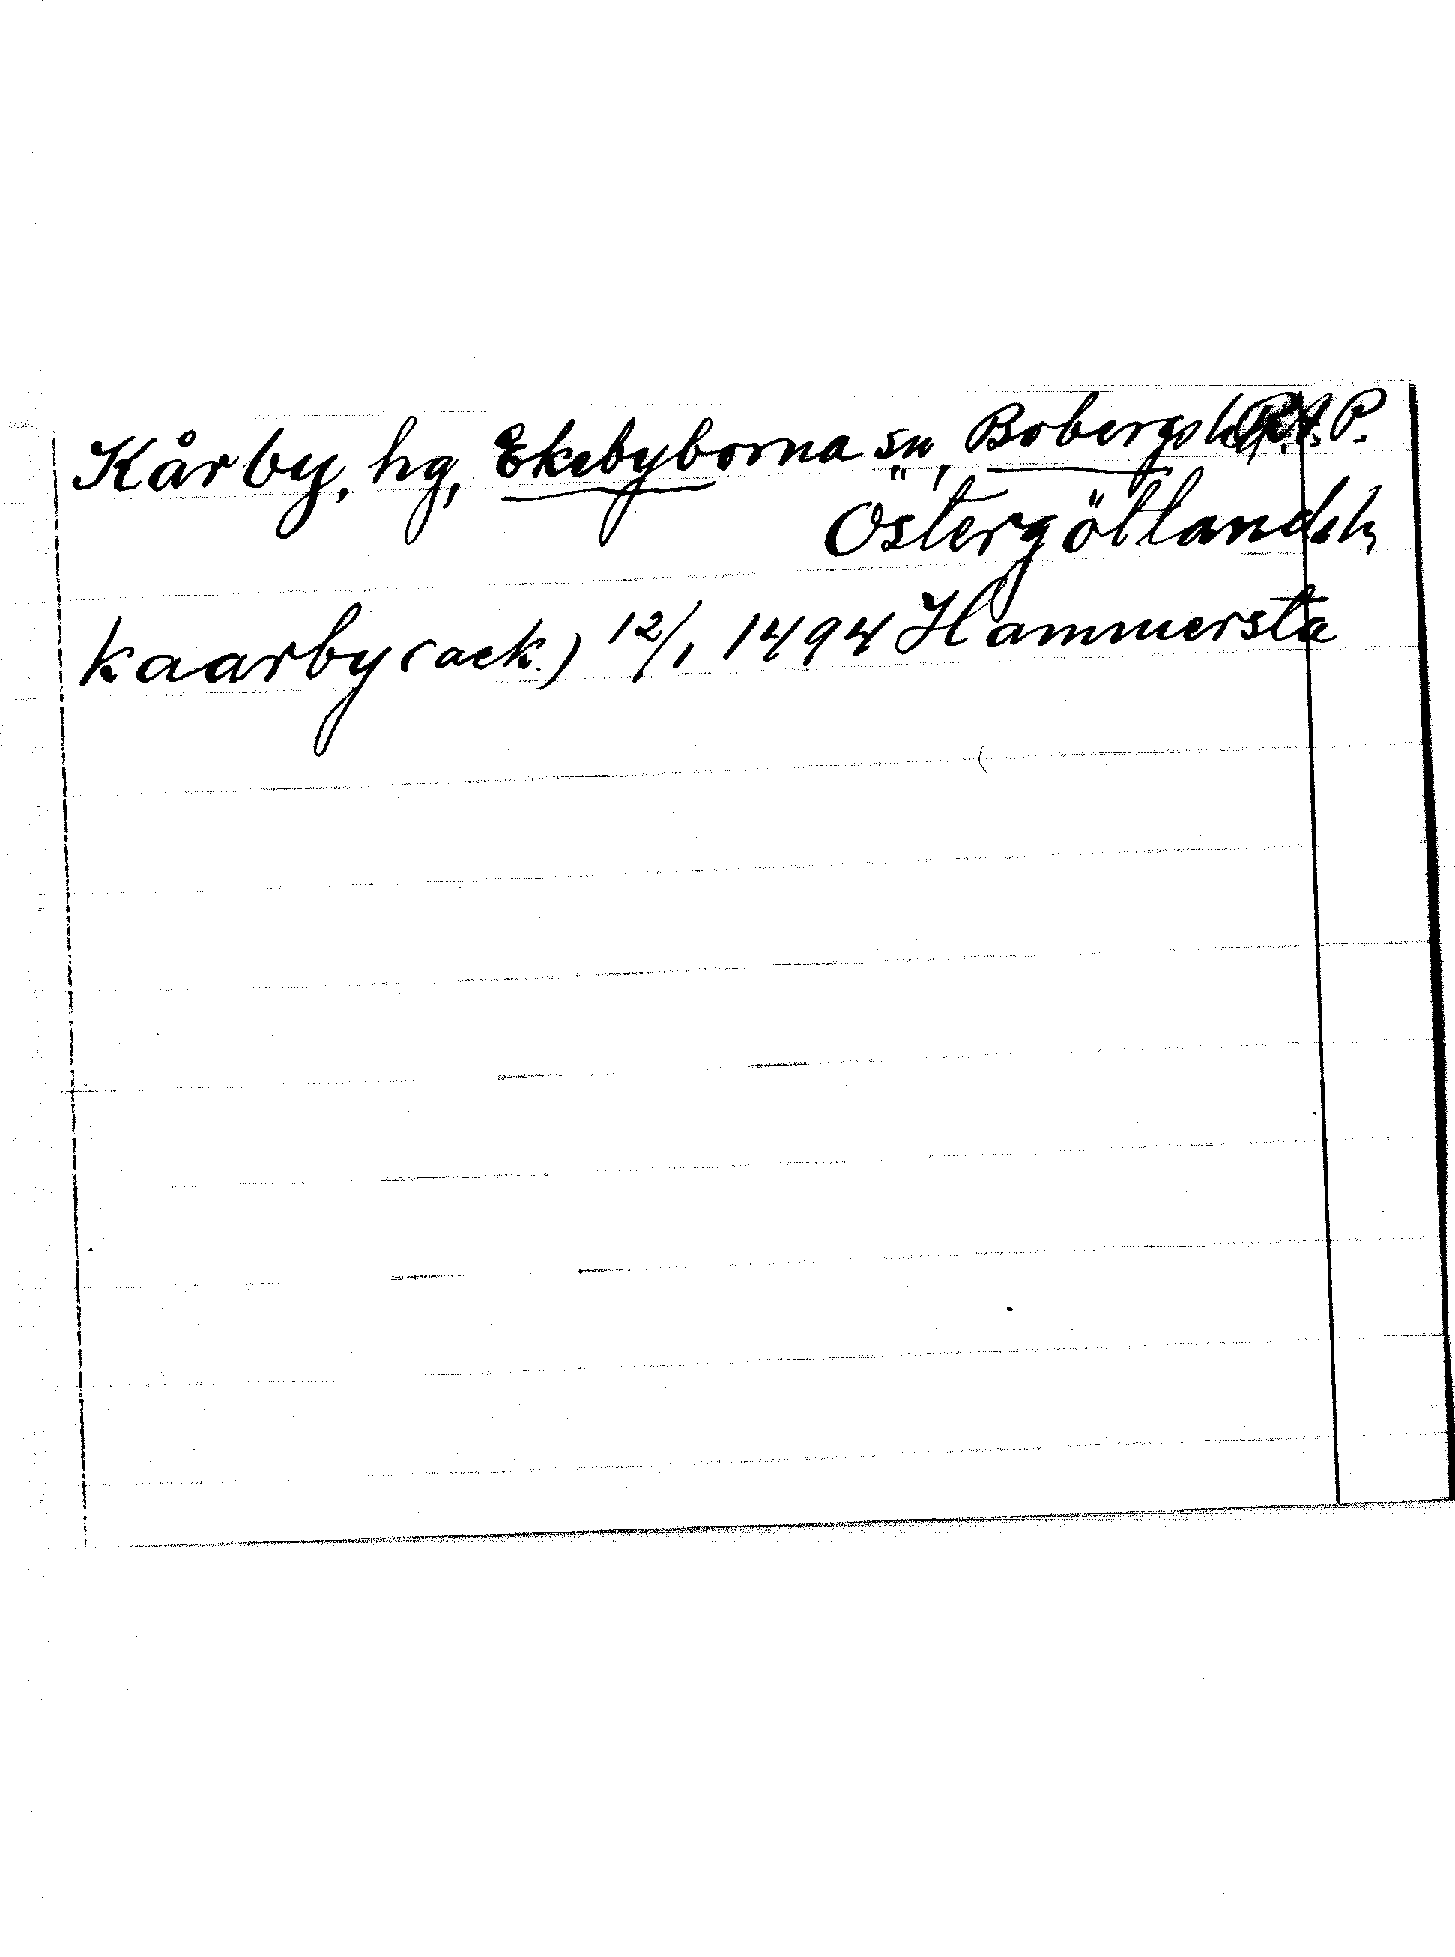 Kårby, hg, Ekebyborna sn, Bobergs hd R.A.P.
Östergötlands l.
kaarby (ack.) 12/1 1494 Hammersta